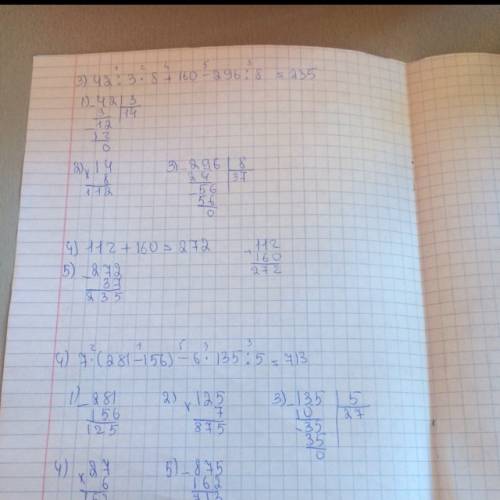 1 2 4 5 3
3) 42 : 3 · 8 + 160 - 296 : 8 = 235
1) - 42 | 3
3 | 14
- 12
0
2) x 14
8
112
3) - 296 | 8
24 | 37
- 56
56
0
4) 112 + 160 = 272
+ 112
160
272
5) - 272
37
235
2 1 5 3
4) 7 · (281 - 156) - 6 · 135 : 5 = 713
1) - 281
156
125
2) x 125
7
875
3) - 135 | 5
10 | 27
- 35
35
0
4) x 27
6
162
5) - 875
162
713